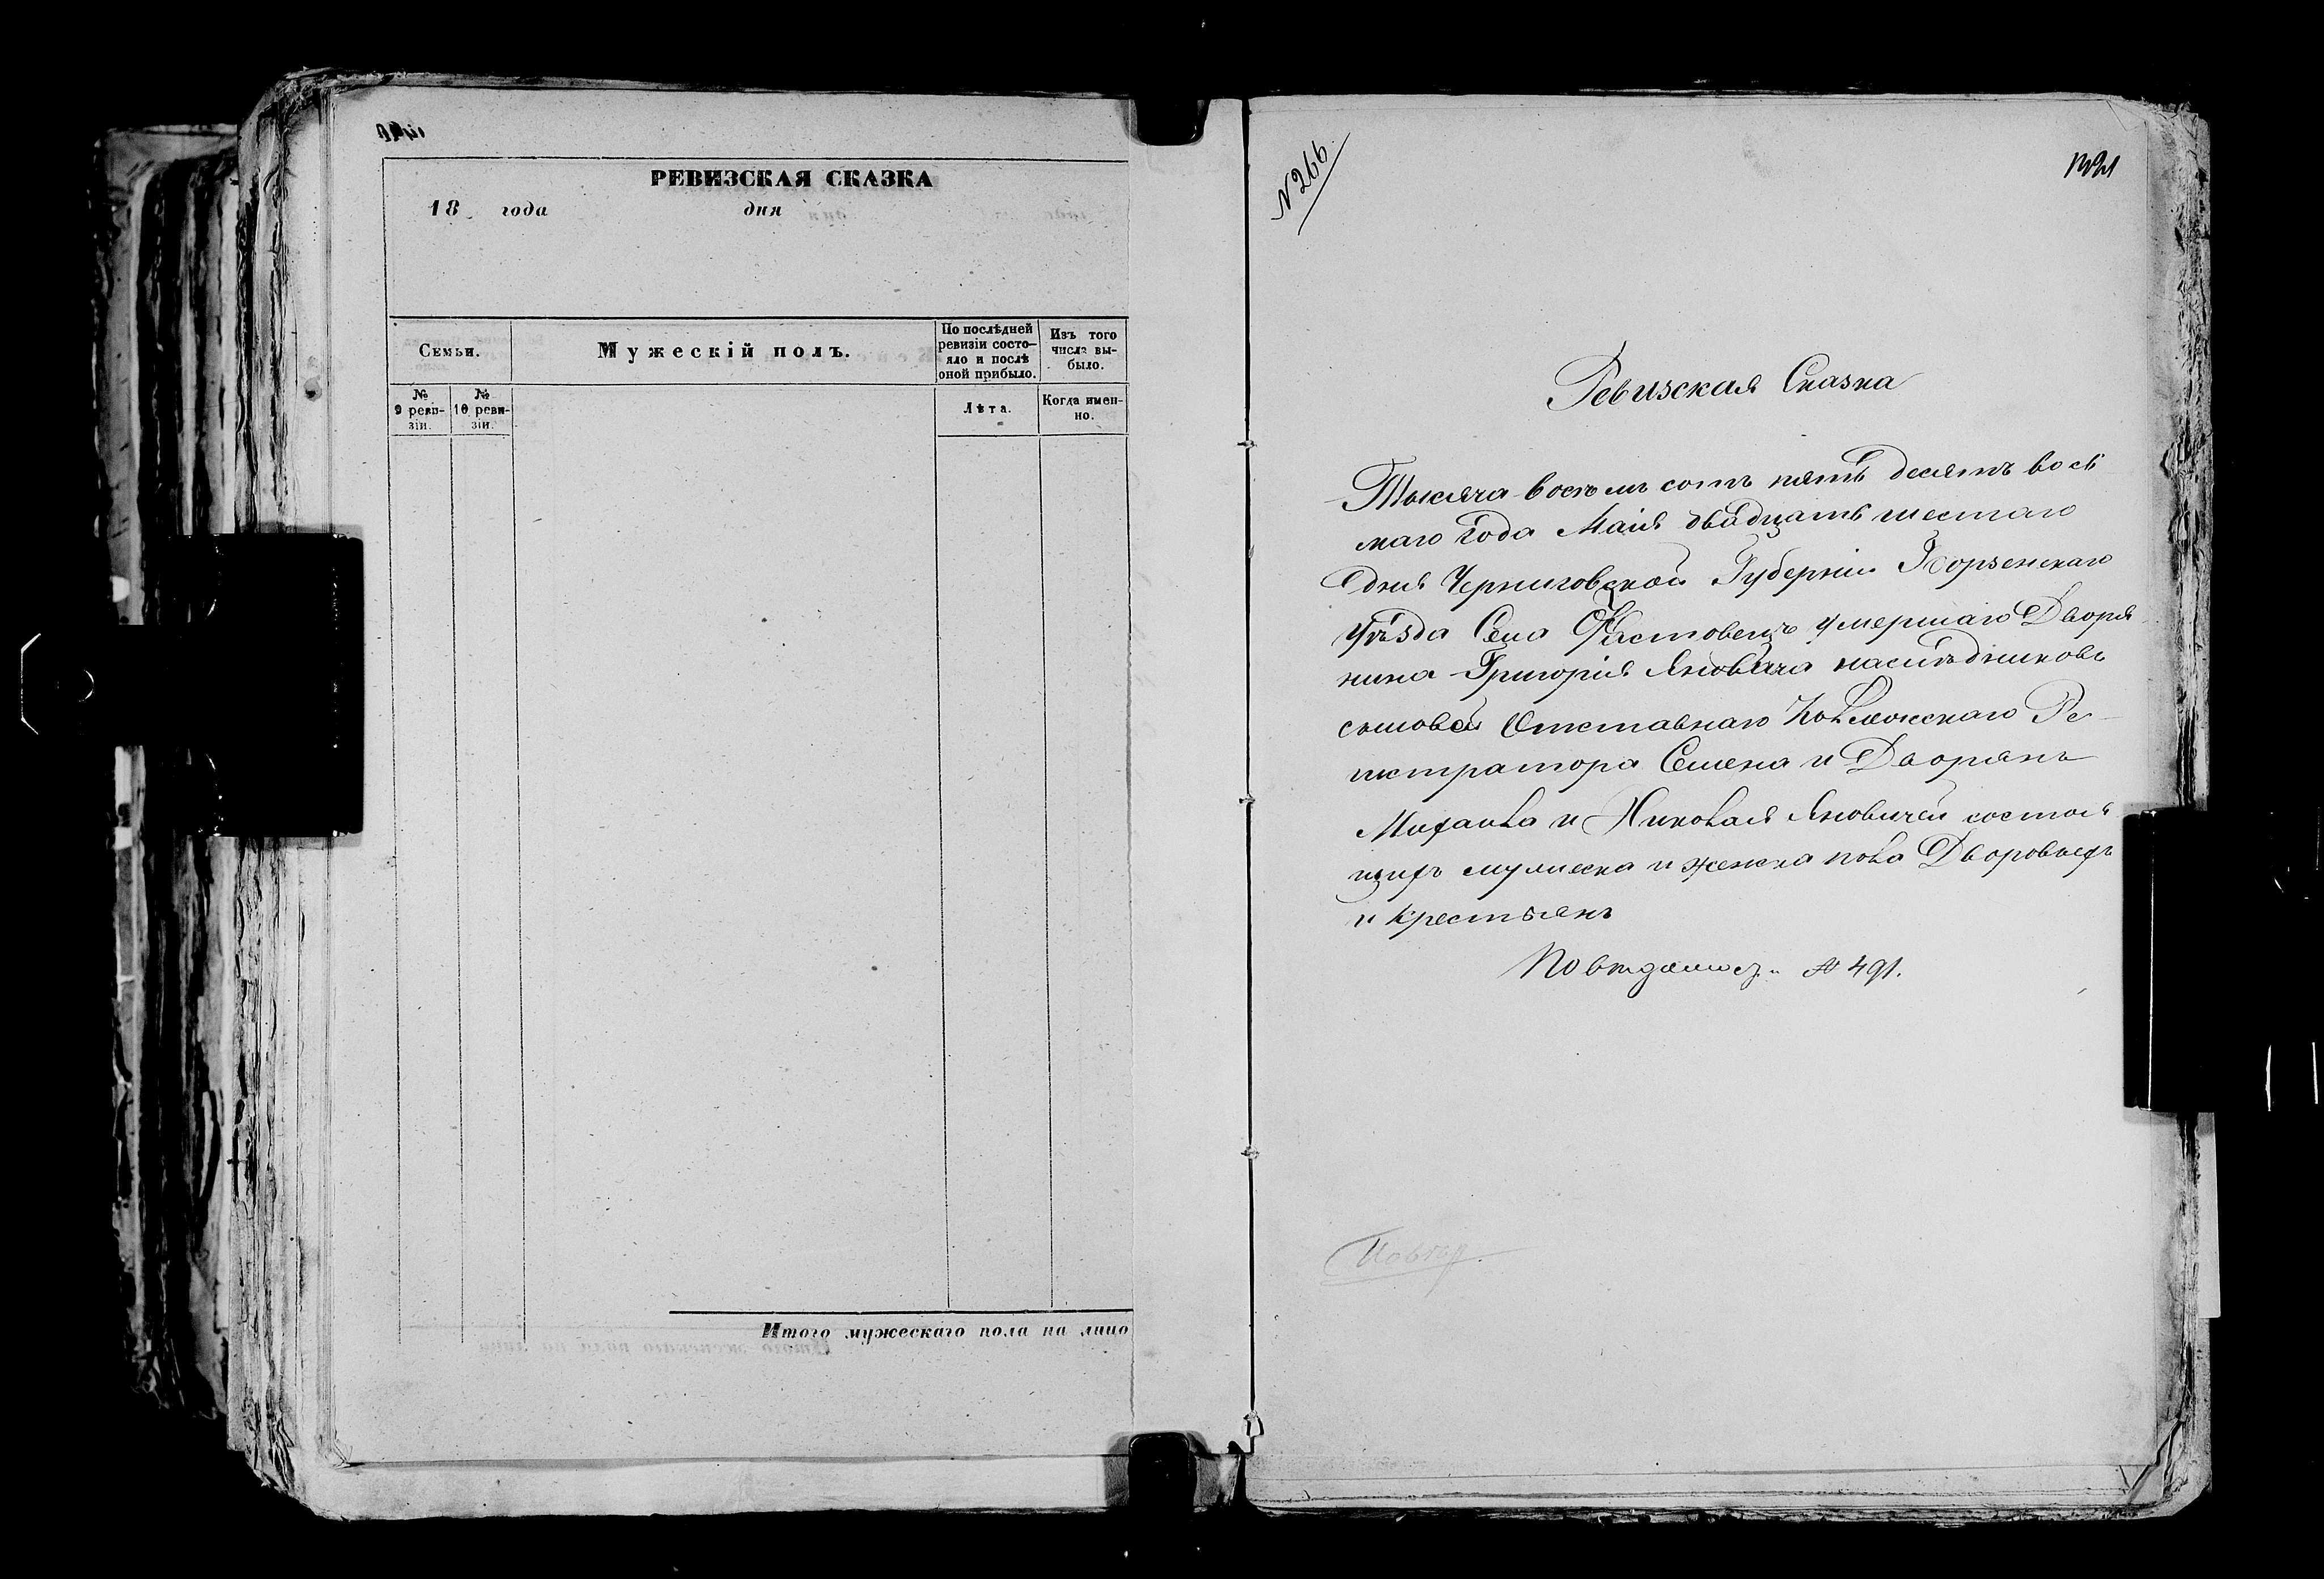 РЕВИЗСКАЯ СКАЗКА
18 года дня
Семьи.
Мужескій полъ.
По послѣдней ревизіи состо-
яло и послѣ
оной прибыло.
Изъ того
числа вы-
было.
№
9 реви-
зіи.
№
10 реви-
зіи.
Лѣта.
Когда имен-
но.
Итого мужескаго пола на лицо
N 266
Ревизская Сказка
Тысяча восемь сотъ пять десятъ вось
маго года Маія двадцать шестаго
дня Черниговской Губерніи Борзенскаго
Уѣзда Села Фастовецъ умершаго Дворя
нина Григорія Яновича наслѣдниковъ
сыновей Отставнаго Коллежскаго Ре-
гистратора Семена и Дворянъ
Михаила и Николая Яновичей состоя
щихъ мужеска и женска пола Дворовыхъ
и крестьянъ
№ 491.